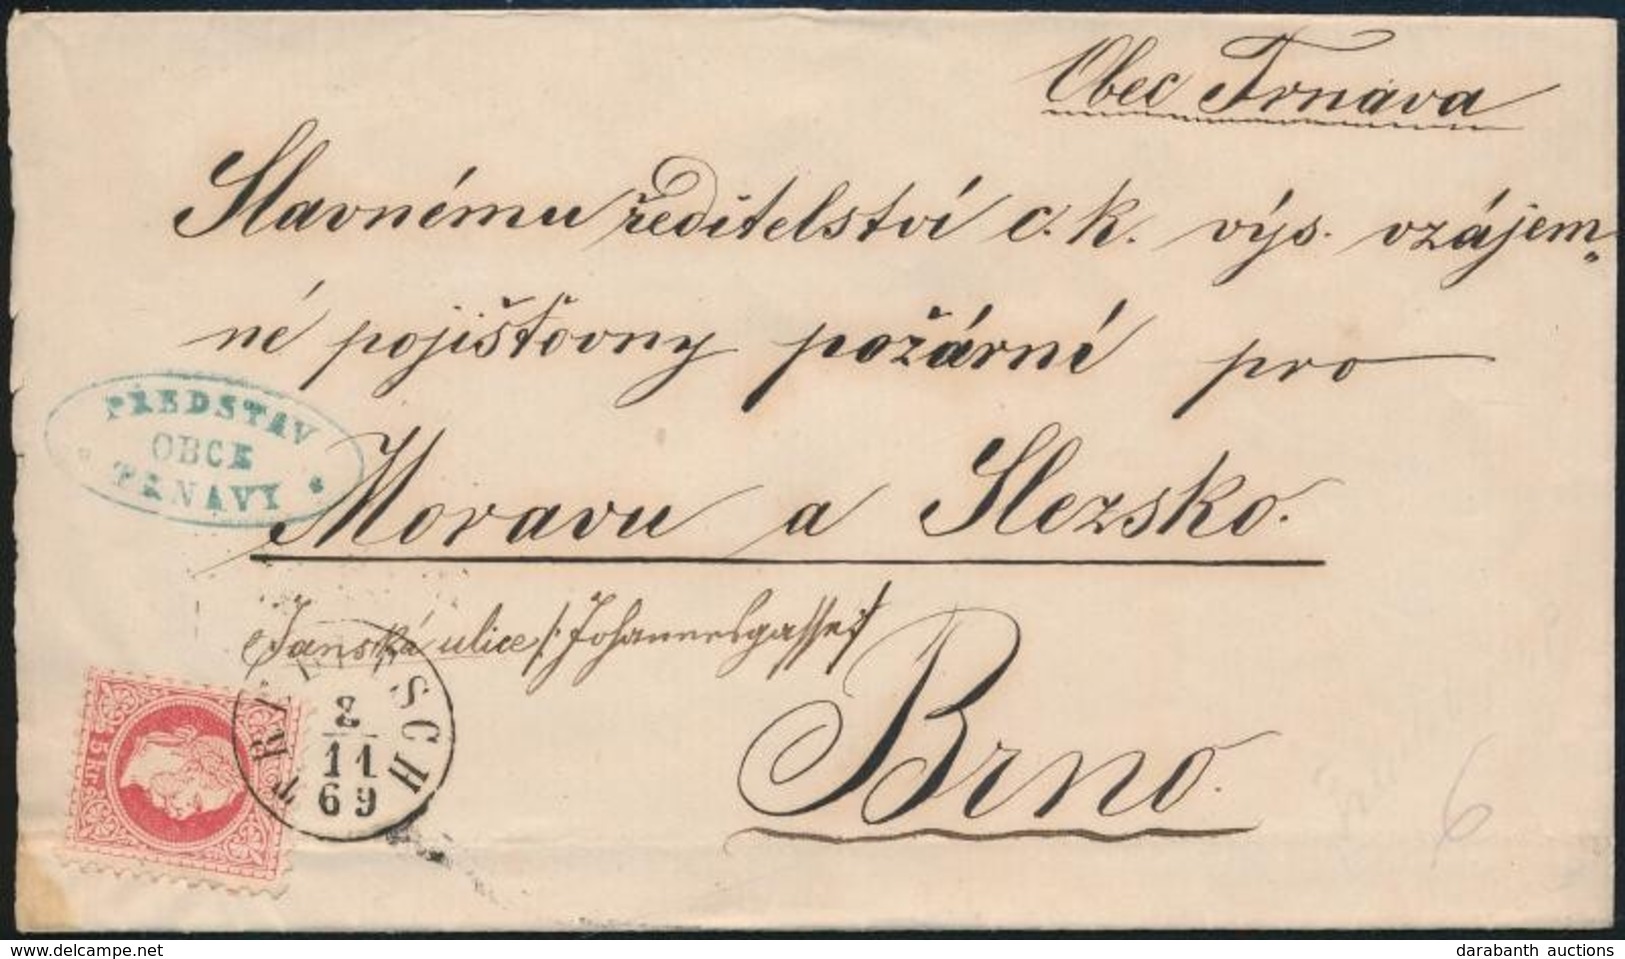 Obec Trnava
Slavnému ředitelství c. k. výs. vzájem„
né pojišťovny požárné pro
PŘEDSTAV
OBCE
TRNAVY
Moravu a Slezsko.
Janská ulice /: Johannesgasse :/
5 kr.
TREBITSCH
2
11
69
Brno.
6
www.delcampe.net
darabanth auctions